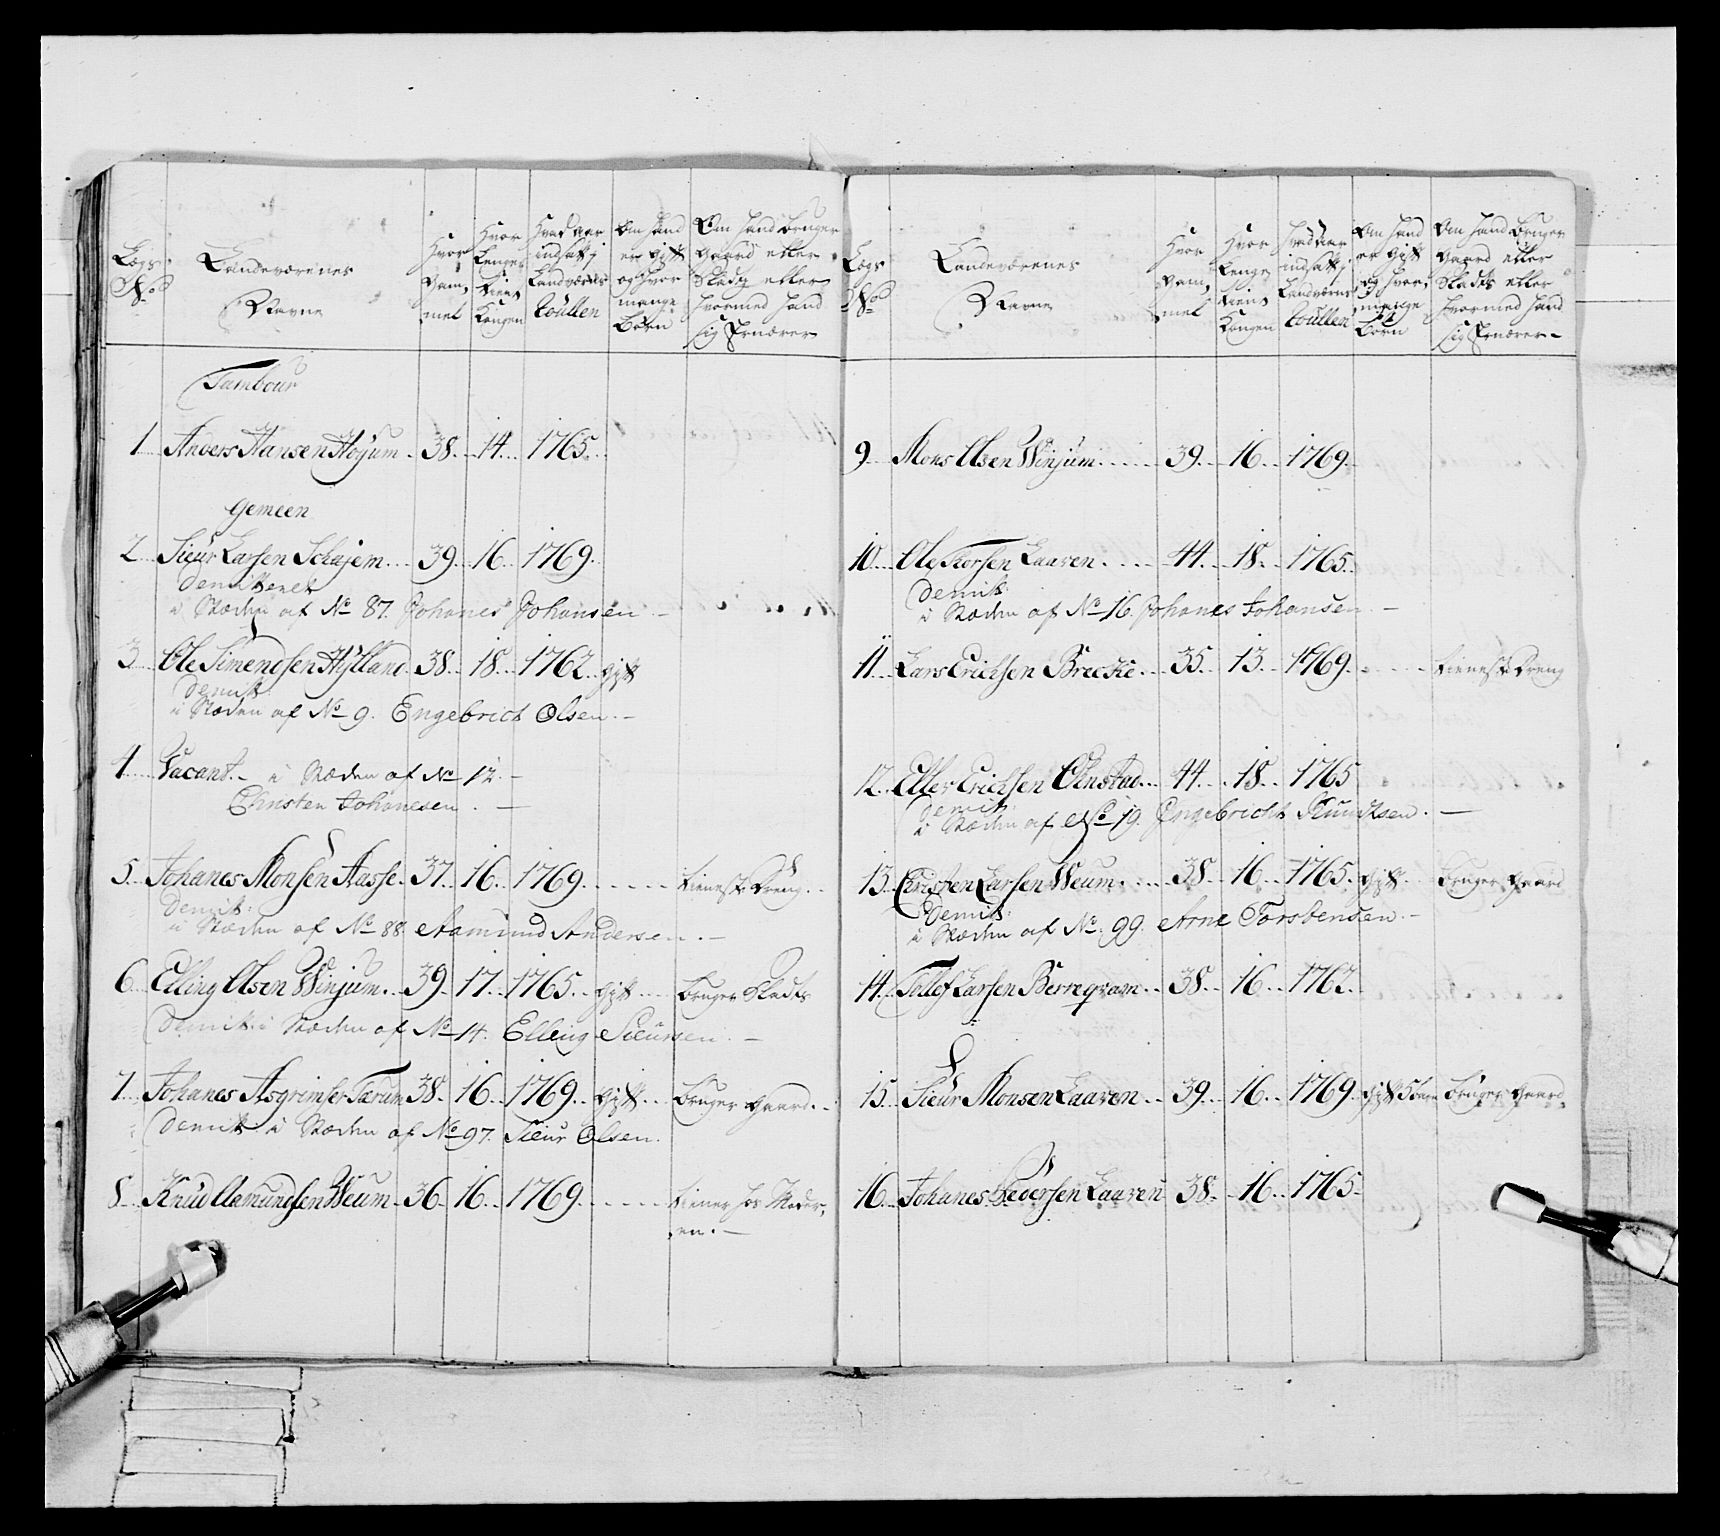 Lægs No
Landeværnes Navne
Hvor Gammel
Hvor Lenge Tient Kongen
Hvad aar indsatt i Landværns Roullen
Om hand er gift og hvor mange Børn
Om hand bruger gaard eller Pladtz eller hvormed hand sig Ernærer
Tambour
1 Anders Hansen Høyum 38 14 1765
Gemeen
2 Sieur Larsen Schajem 39 16 1769
Demitteret
i Stæden af No 87. Johanes Johansen
3 Ole Simendsen Hylland 38 18 1762 gift
Demitt:
i Stæden af No 9. Engebrict Olsen
4 Vacant. i Stæden af No 12
Christen Johanesen
5 Johanes Monsen Aasse 37 16 1769 tieneste Dreng
Demit:
i Stæden af No 88. Aamund Andersen
6 Elling Olsen Winjum 39 17 1765 gift bruger Pladts
Demit: i Stæden af No 14. Elling Sieursen
7 Johanes Asgrimsen Tærum 38 16 1769 gift bruger gaard
Demitt i Stæden af No 97. Sieur Olsen
8 Knud Aamundsen Weum 36 16 1769 tiener hos Moder,
en.
Lægs No
Landeværnes Navne
Hvor Gammel
Hvor Lenge tient Kongen
Hvad aar indsatt i Landværns Roullen
Om hand er gift og hvor mange Børn
Om hand bruger gaard eller Pladts eller hvormed hand sig Ernærer
9 Mons Olsen Winjum 39 16 1769
10 Ole Torsen Laaven 44 18 1765
Demit:
i Stæden af No 16. Johanes Johansen
11 Lars Erichsen Brecke 35 13 1769 tieneste Dreng
12 Eller Erichsen Ønstad 44 18 1765
Demit:
i Stæden af No 19. Engebricht Knudtsen
13 Christen Larsen Weum 38 16 1765 gift bruger gaard
Demit:
i Stæden af No 99. Arne Torstensen
14 Tollef Larsen Berregvam 38 16 1762
15 Sieur Monsen Laaven 39 16 1769 gift 5 børn bruger gaard
16 Johanes Pedersen Laaven 38 16 1765